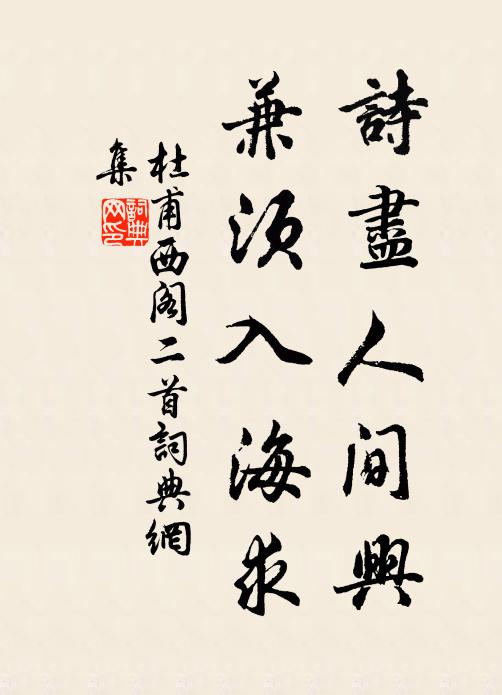 詩盡人間興
兼須入海求
杜甫西閣二首詞典網
集
詞典網印